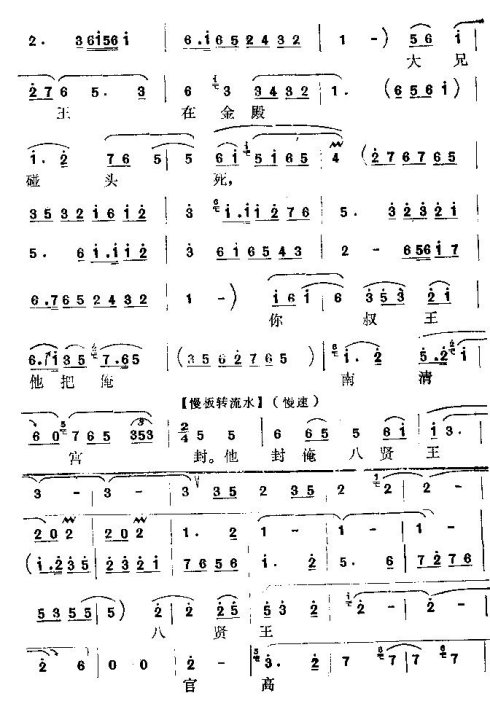 2. 3 6 i 5 6 i | 6. i 6 5 2 4 3 2 | 1 - ) 5 6 i
大 兄
2 7 6 5. 3 | 6 3 3 4 3 2 | 1. ( 6 5 6 i )
王 在 金 殿
i. 2 7 6 5 5 | 6 i 5 i 6 5 4 | ( 2 7 6 7 6 5
碰 头 死,
3 5 3 2 i 6 i 2 | 3 i. i i 2 7 6 | 5. 3 2 3 2 i
5. 6 i. i i 2 | 3 6 i 6 5 4 3 | 2 - 6 5 6 i 7
6. 7 6 5 2 4 3 2 | 1 - ) i 6 i | 6 3 5 3 2 i
你 叔 王
6. i 3 5 7. 6 5 | ( 3 5 6 2 7 6 5 ) | i. 2 5. 2
他 把 俺 南 清
【慢板转流水】(慢速)
6 0 7 6 5 3 5 3 | 2/4 5 5 | 6 6 5 | 5 6 i | i 3.
宫 封。他 封 俺 八 贤 王
3 - | 3 - | 3 3 5 | 2 3 5 | 2 - | 2 -
2 0 2 | 2 0 2 | 1. 2 | 1 - | 1 - | 1 -
( i. 2 3 5 | 2 3 2 i | 7 6 5 6 | i. 2 | 5. 6 | 7 2 7 6
5 3 5 5 | 5 ) 2 | 2 2 5 | 5 3 2 | 2 - | 2 -
八 贤 王
2 6 | 0 0 | 2 2 | 3. 2 | 7 7 | 7 -
官 高